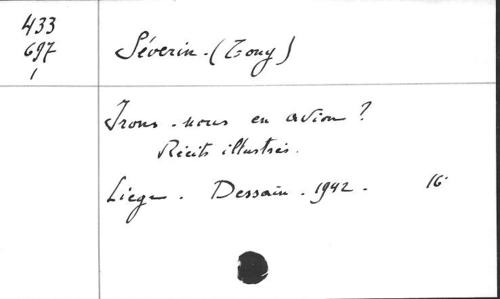 433
697
1
Séverin. (Tony)
Irons-nous en avion ?
Récits illustrés.
Liège. Dessain. 1942. 16°